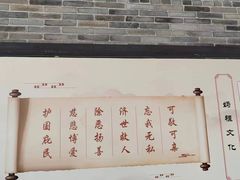 妈祖文化
可敬可亲
忘我无私
济世救人
除恶扬善
慈悲博爱
护国庇民